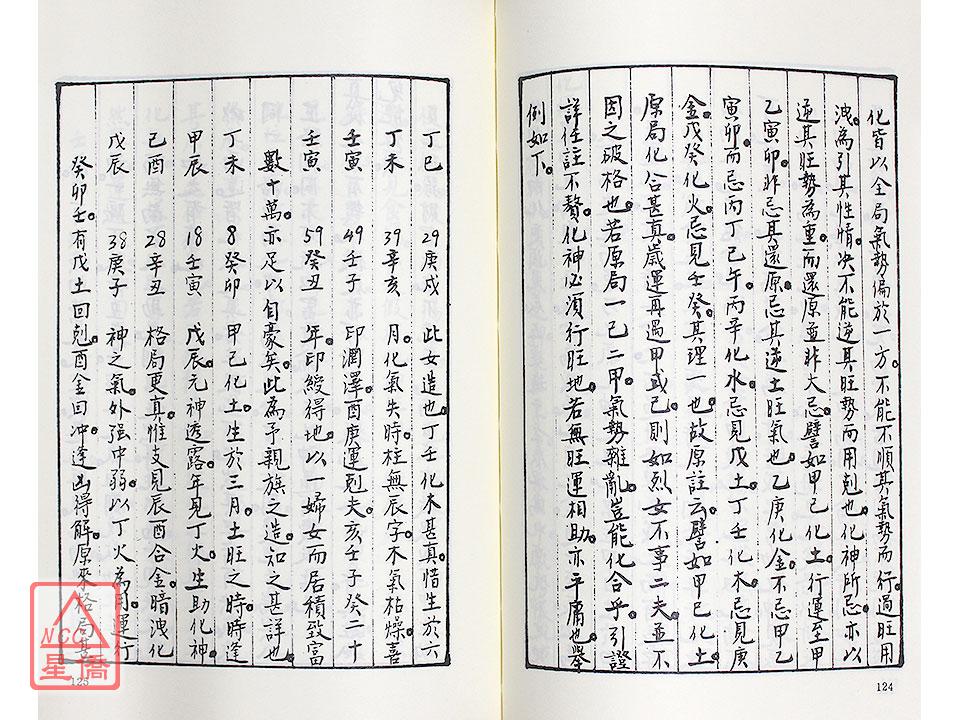 化皆以全局氣勢偏於一方。不能不順其氣勢而行。過旺用
洩。為引其性情。決不能逆其旺勢而用剋也。化神所忌。亦以
逆其旺勢為重。而還原並非大忌。譬如甲己化土。行運至甲
乙寅卯。非忌其還原。忌其逆土旺氣也。乙庚化金。不忌甲乙
寅卯。而忌丙丁巳午。丙辛化水。忌見戊土。丁壬化木忌見庚
金。戊癸化火。忌見壬癸。其理一也。故原註云。譬如甲己化土。
原局化合甚真。歲運再遇甲或己。則如烈女不事二夫。並不
因之破格也。若原局一己二甲。氣勢雜亂。豈能化合乎。引證
詳任註不贅。化神必須行旺地。若無旺運相助。亦平庸也。舉
例如下。
124
丁巳 29庚戌 此女造也。丁壬化木甚真。惜生於六
丁未 39辛亥 月。化氣失時。柱無辰字。木氣枯燥。喜
壬寅 49壬子 印潤澤。酉庚運剋夫。亥壬子癸二十
壬寅 59癸丑 年。印綬得地。以一婦女而居積致富
數十萬。亦足以自豪矣。此為予親族之造。知之甚詳也。
丁未 8癸卯 甲己化土。生於三月。土旺之時。時逢
甲辰 18壬寅 戊辰。元神透露。年見丁火。生助化神。
己酉 28辛丑 格局更真。惟支見辰酉合金。暗洩化
戊辰 38庚子 神之氣。外強中弱。以丁火為用。運行
癸卯壬。有戊土回剋。酉金回冲。逢凶得解。原來格局甚
125
NCC
星僑